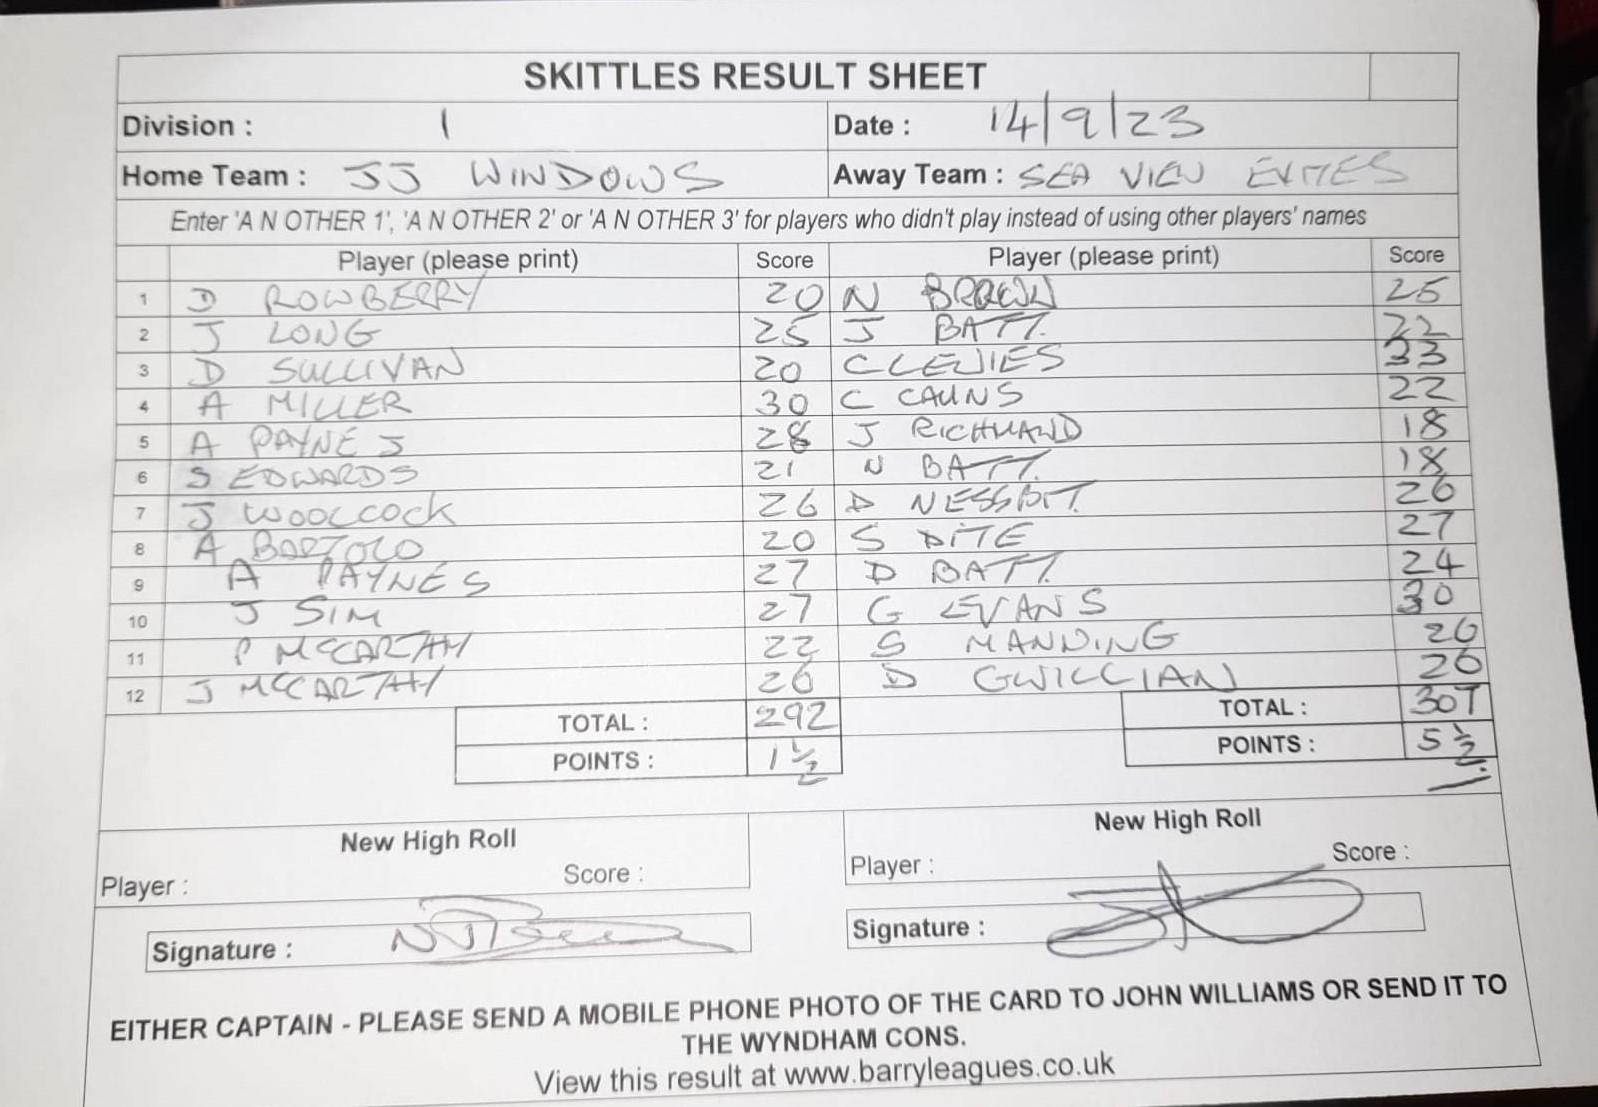 SKITTLES RESULT SHEET
Division : 1 Date : 14/9/23
Home Team : JJ WINDOWS Away Team : SEA VIEW
Enter 'A N OTHER 1', 'A N OTHER 2' or 'A N OTHER 3' for players who didn't play instead of using other players' names
Player (please print) Score Player (please print) Score
1 D ROWBERRY 20 N BROWN 25
2 J LONG 25 J BATT. 22
3 D SULLIVAN 20 C LEWIES 33
4 A MILLER 30 C 22
5 A PAYNE J 28 J RICHMAND 18
6 S EDWARDS 21 N BATT. 18
7 J WOOLCOCK 26 D NESSBIT. 26
8 A BARTOLO 20 S DITE 27
9 A PAYNE S 27 D BATT. 24
10 J SIM 27 G EVANS 30
11 P MCCARTHY 22 S MANNING 26
12 J MCCARTHY 26 D GWILLIAN
TOTAL : 292 TOTAL : 307
POINTS : 1 ½ POINTS : 5 ½
New High Roll New High Roll
Player : Score : Player : Score :
Signature : Signature :
EITHER CAPTAIN - PLEASE SEND A MOBILE PHONE PHOTO OF THE CARD TO JOHN WILLIAMS OR SEND IT TO
THE WYNDHAM CONS.
View this result at www.barryleagues.co.uk